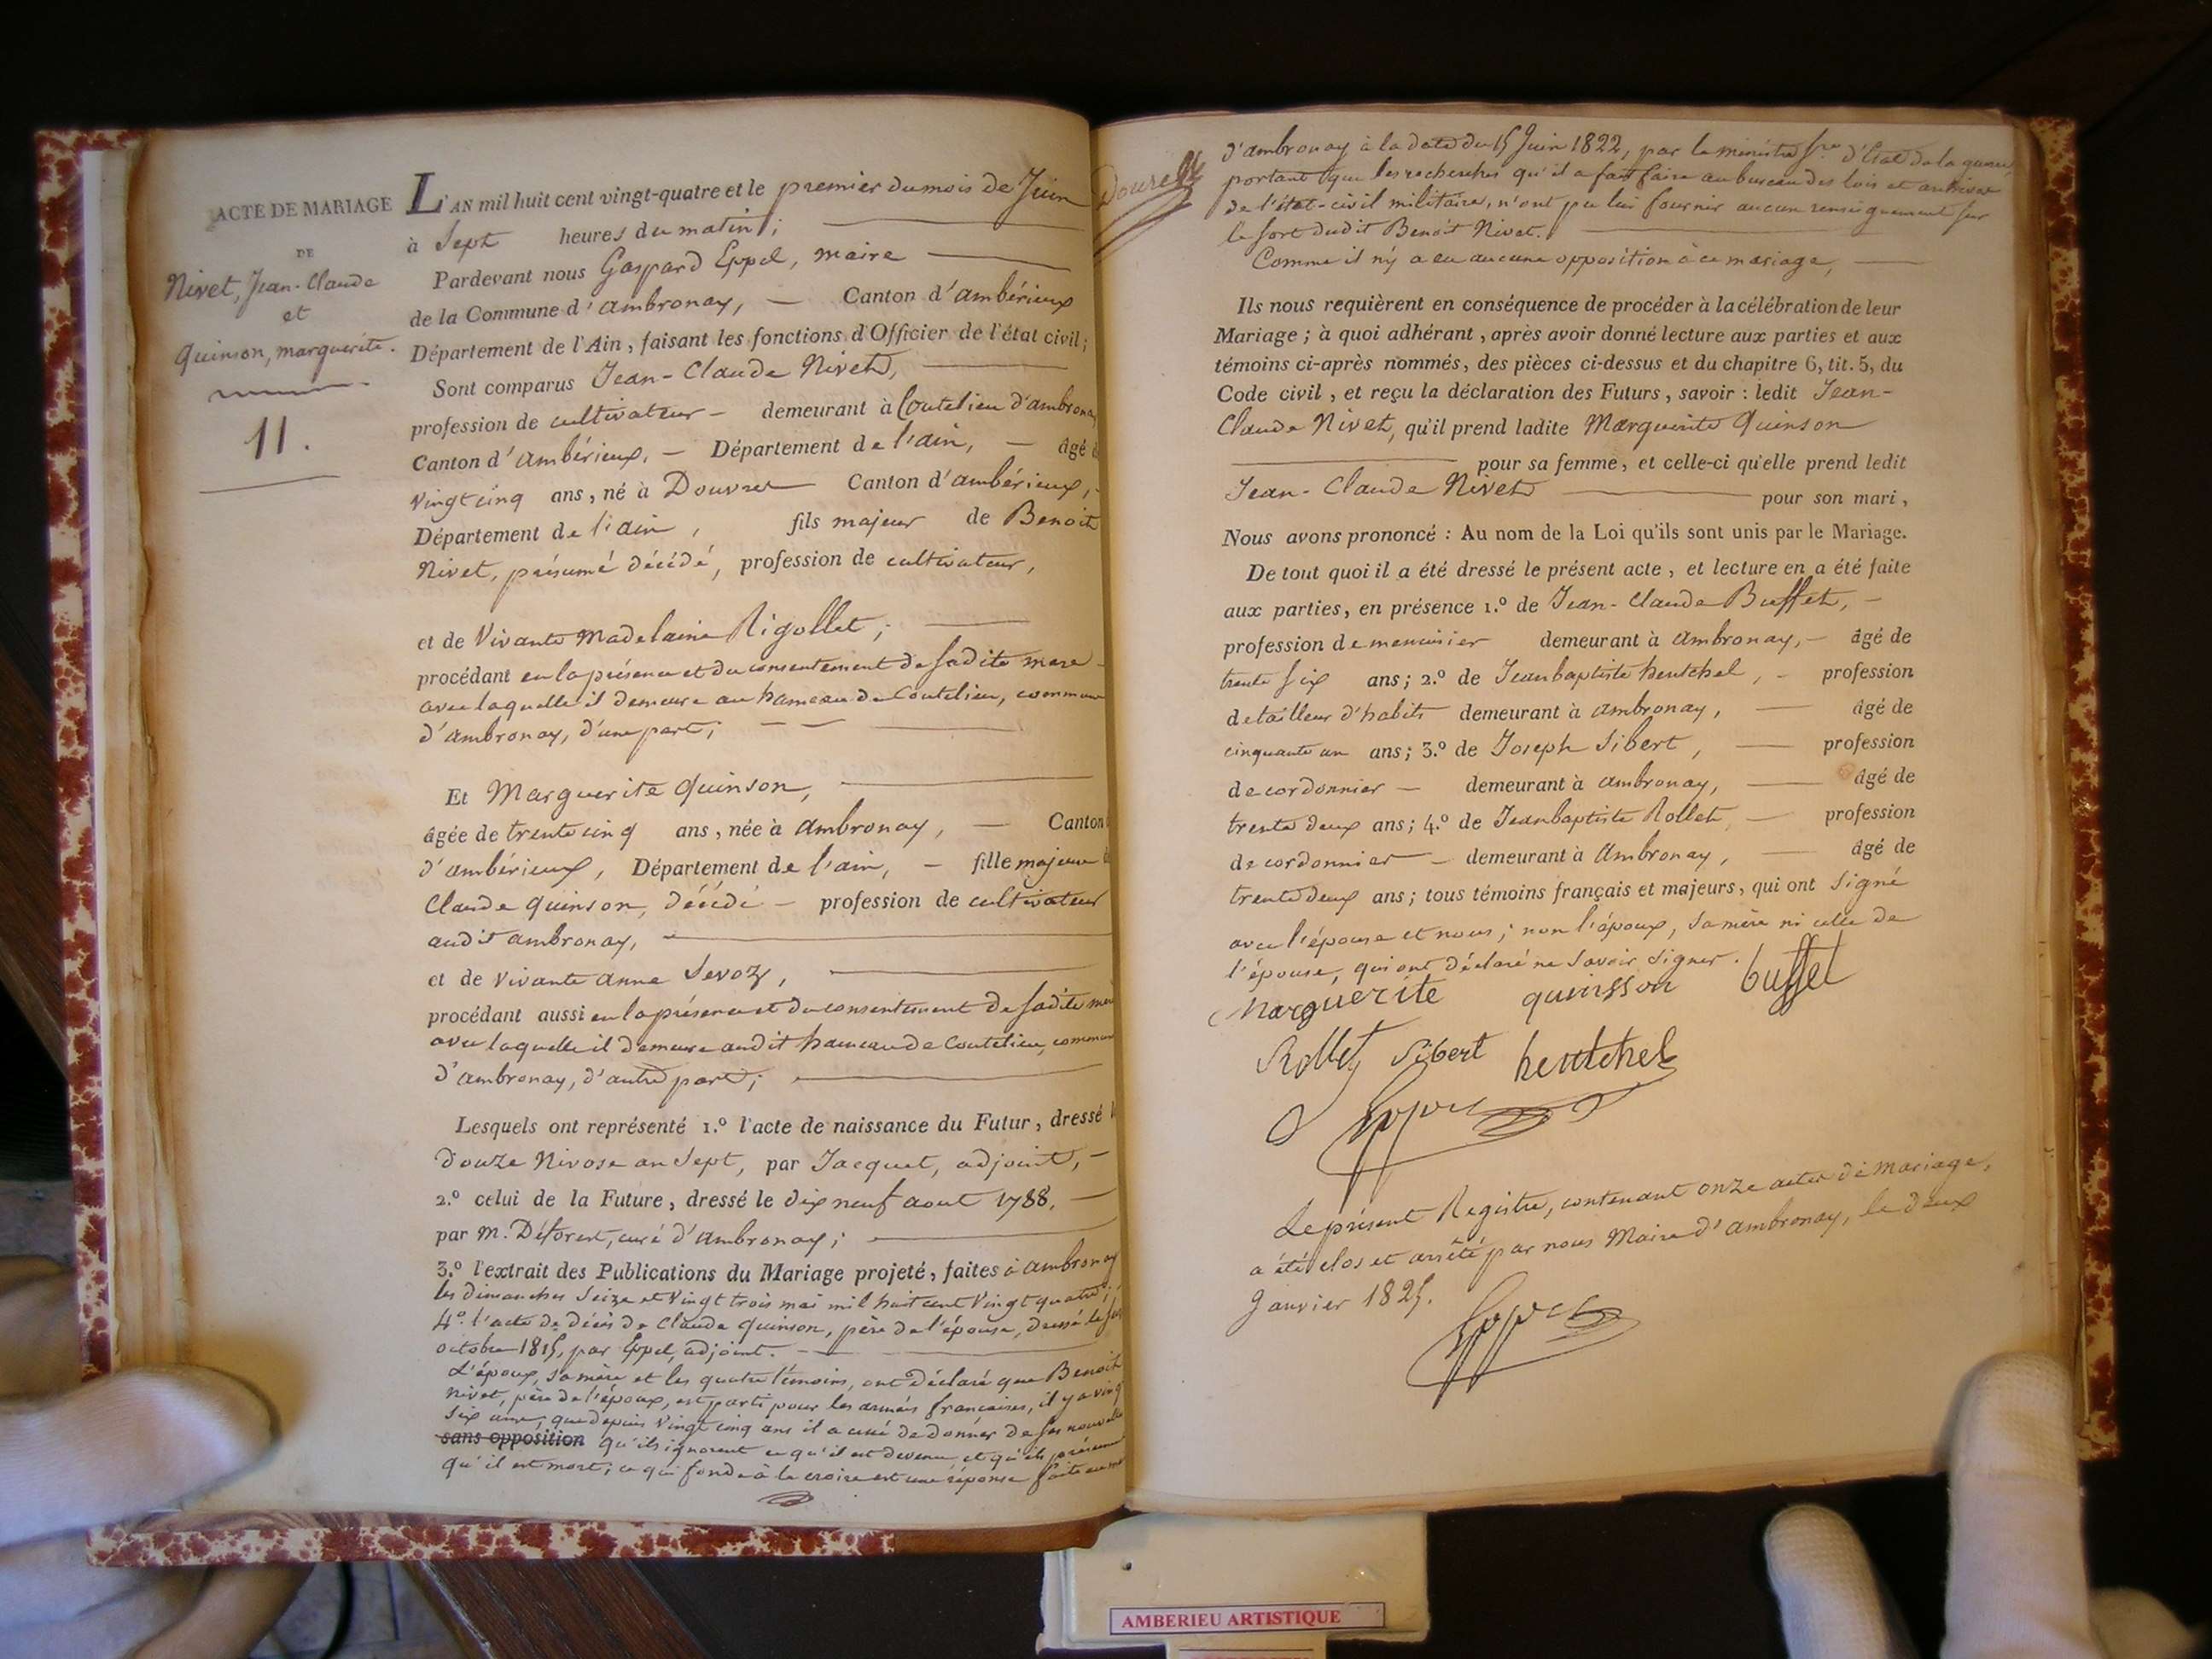 ACTE DE MARIAGE
DE
Nivet, Jean-Claude
et
Quinson, marguerite.
11.
L'AN mil huit cent vingt-quatre et le premier du mois de Juin
à Sept heures du matin ;
Pardevant nous Gaspard Eppel, maire
de la Commune d'ambronay, Canton d'ambérieux
Département de l'Ain, faisant les fonctions d'Officier de l'état civil ;
Sont comparus Jean-Claude Nivet,
profession de cultivateur demeurant à Coutelieu d'ambronay
Canton d'ambérieux, Département de l'ain, âgé d
vingt cinq ans, né à Douvres Canton d'ambérieux,
Département de l'ain, fils majeur de Benoit
Nivet, présumé décédé, profession de cultivateur,
et de Vivante Madelaine Rigollet ;
procédant en la présence et du consentement de sadite mere
avec laquelle il demeure au hameau de Coutelieu, commune
d'ambronay, d'une part ;
Et Marguerite Quinson,
âgée de trente cinq ans, née à ambronay, Canton
d'ambérieux, Département de l'ain, fille majeure
Claude Quinson, décédé profession de cultivateur
audit ambronay,
et de vivante anne Sevoz,
procédant aussi en la présence et du consentement de sadite
avec laquelle il demeure audit hameau de Coutelieu, commune
d'ambronay, d'autre part ;
Lesquels ont représenté 1.º l'acte de naissance du Futur, dressé l
douze Nivose an Sept, par Jacquet, adjoint,
2.º celui de la Future, dressé le dix neuf aout 1788.
par M. Déforest, curé d'ambronay ;
3.º l'extrait des Publications du Mariage projeté, faites à ambronay
les dimanches Seize et Vingt trois mai mil huit cent Vingt quatre ;
4.º l'acte de décès de Claude Quinson, père de l'épouse, dressé le
octobre 1815, par Eppel, adjoint.
L'époux, sa mère et les quatre témoins, ont déclaré que Benoit
Nivet, père de l'époux, est parti pour les armées françaises, il y a vingt
six ans, que depuis Vingt cinq ans il a cessé de donner de ses nouvelles
sans opposition qu'ils ignorent ce qu'il est devenu et qu'ils présument
qu'il est mort ; ce qui fonde à le croire est une réponse faite
d'ambronay à la date du 15 Juin 1822, par le ministre d'Etat de la guerre,
portant que les recherches qu'il a fait faire au bureau des lois et archives
de l'état-civil militaire, n'ont pu lui fournir aucun renseignement sur
le sort dudit Benoît Nivet.
Comme il n'y a eu aucune opposition à ce mariage,
Ils nous requièrent en conséquence de procéder à la célébration de leur
Mariage ; à quoi adhérant, après avoir donné lecture aux parties et aux
témoins ci-après nommés, des pièces ci-dessus et du chapitre 6, tit. 5, du
Code civil, et reçu la déclaration des Futurs, savoir : ledit Jean-
Claude Nivet, qu'il prend ladite Marguerite Quinson
pour sa femme, et celle-ci qu'elle prend ledit
Jean-Claude Nivet pour son mari,
Nous avons prononcé : Au nom de la Loi qu'ils sont unis par le Mariage.
De tout quoi il a été dressé le présent acte, et lecture en a été faite
aux parties, en présence 1.º de Jean-Claude Buffet,
profession de menuisier demeurant à ambronay, âgé de
trente six ans ; 2.º de Jeanbaptiste hentchel, profession
de tailleur d'habits demeurant à ambronay, âgé de
cinquante un ans ; 3.º de Joseph Sibert, profession
de cordonnier demeurant à ambronay, âgé de
trente deux ans ; 4.º de Jeanbaptiste Rollet, profession
de cordonnier demeurant à Ambronay, âgé de
trente deux ans ; tous témoins français et majeurs, qui ont Signé
avec l'épouse et nous ; non l'époux, sa mère ni celle de
l'épouse, qui ont déclaré ne savoir signer.
Marguerite quinsson buffet
Rollet Sibert hentchel
Eppel
Le présent Registre, contenant onze actes de mariage,
a été clos et arrêté par nous Maire d'ambronay, le deux
Janvier 1825.
Eppel
AMBERIEU ARTISTIQUE